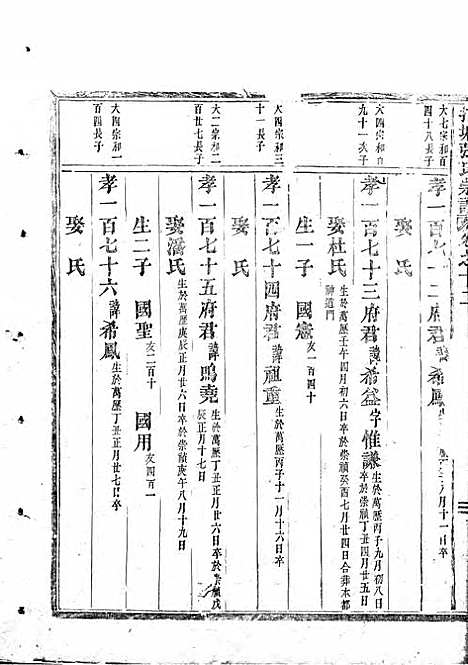 大七宗和百
四十八長子
孝一百七十二府君諱希鳳
月十一日卒
娶 氏
大四宗和百
九十一次子
孝一百七十三府君諱希益字惟謙生於萬歷丙子九月初八日
卒於崇禎丁丑四月廿五日
娶杜氏生於萬歷壬午四月初六日卒於崇禎癸酉七月廿四日合葬本都
神道門
生一子 國憲亥一百四十
大四宗和三
十一長子
孝一百七十四府君諱祖重生於萬歷丙子十一月十六日卒
娶 氏
大二宗和二
百廿七長子
孝一百七十五府君諱鳴堯生於萬歷丁丑正月廿六日卒於崇禎戊
辰正月十七日
娶潘氏生於萬歷庚辰正月廿六日卒於崇禎庚午八月十九日
生二子 國聖亥二百十 國用亥四百一
大四宗和一
百四長子
孝一百七十六諱希鳳生於萬歷丁丑正月廿七日卒
娶 氏